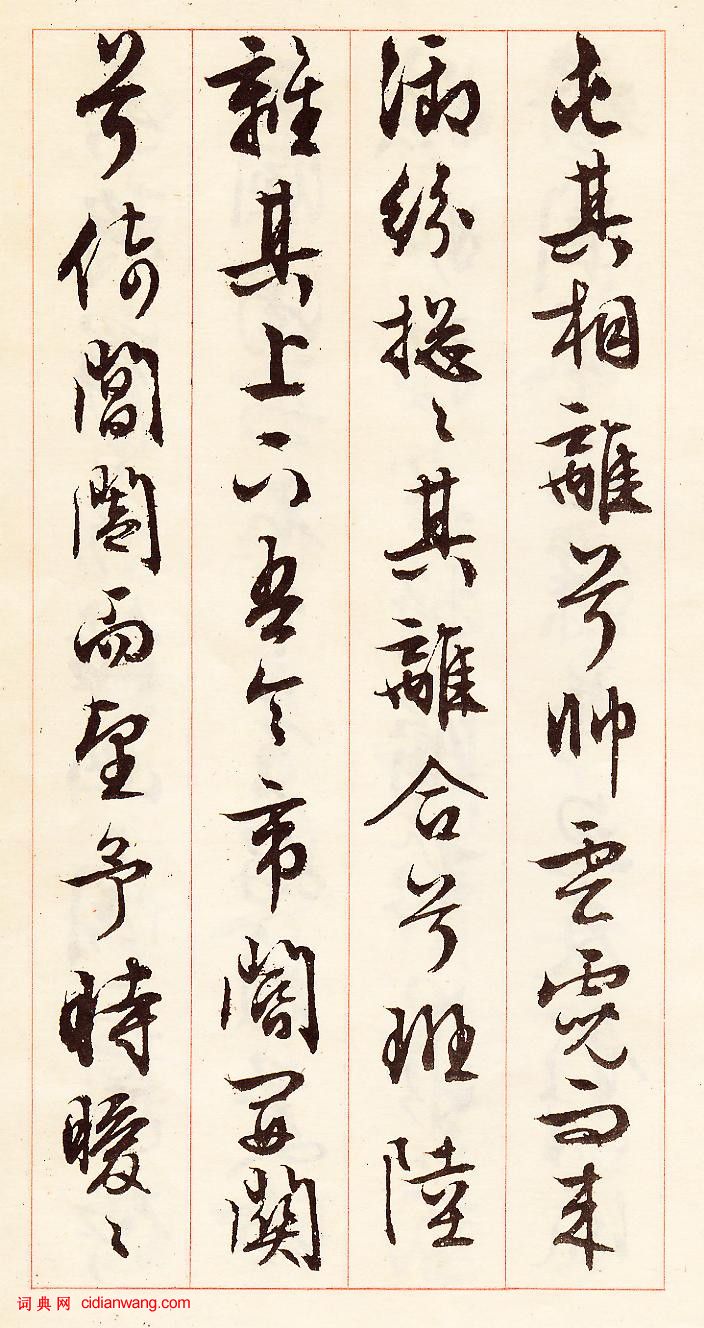 屯其相離兮帥雲霓而來
御紛揔〻其離合兮班陸
離其上下吾令帝閽開關
兮倚閶闔而望予時曖〻
词典网 cidianwang.com